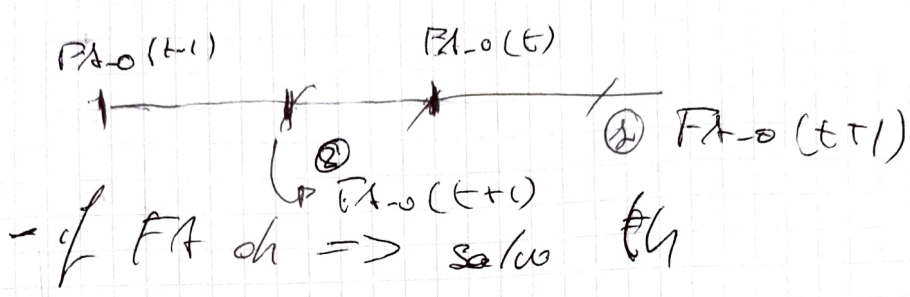 FA_0(t-1) FA_0(t)
① FA_0(t+1)
②
FA_0(t+1)
- if FA ok => salvo th